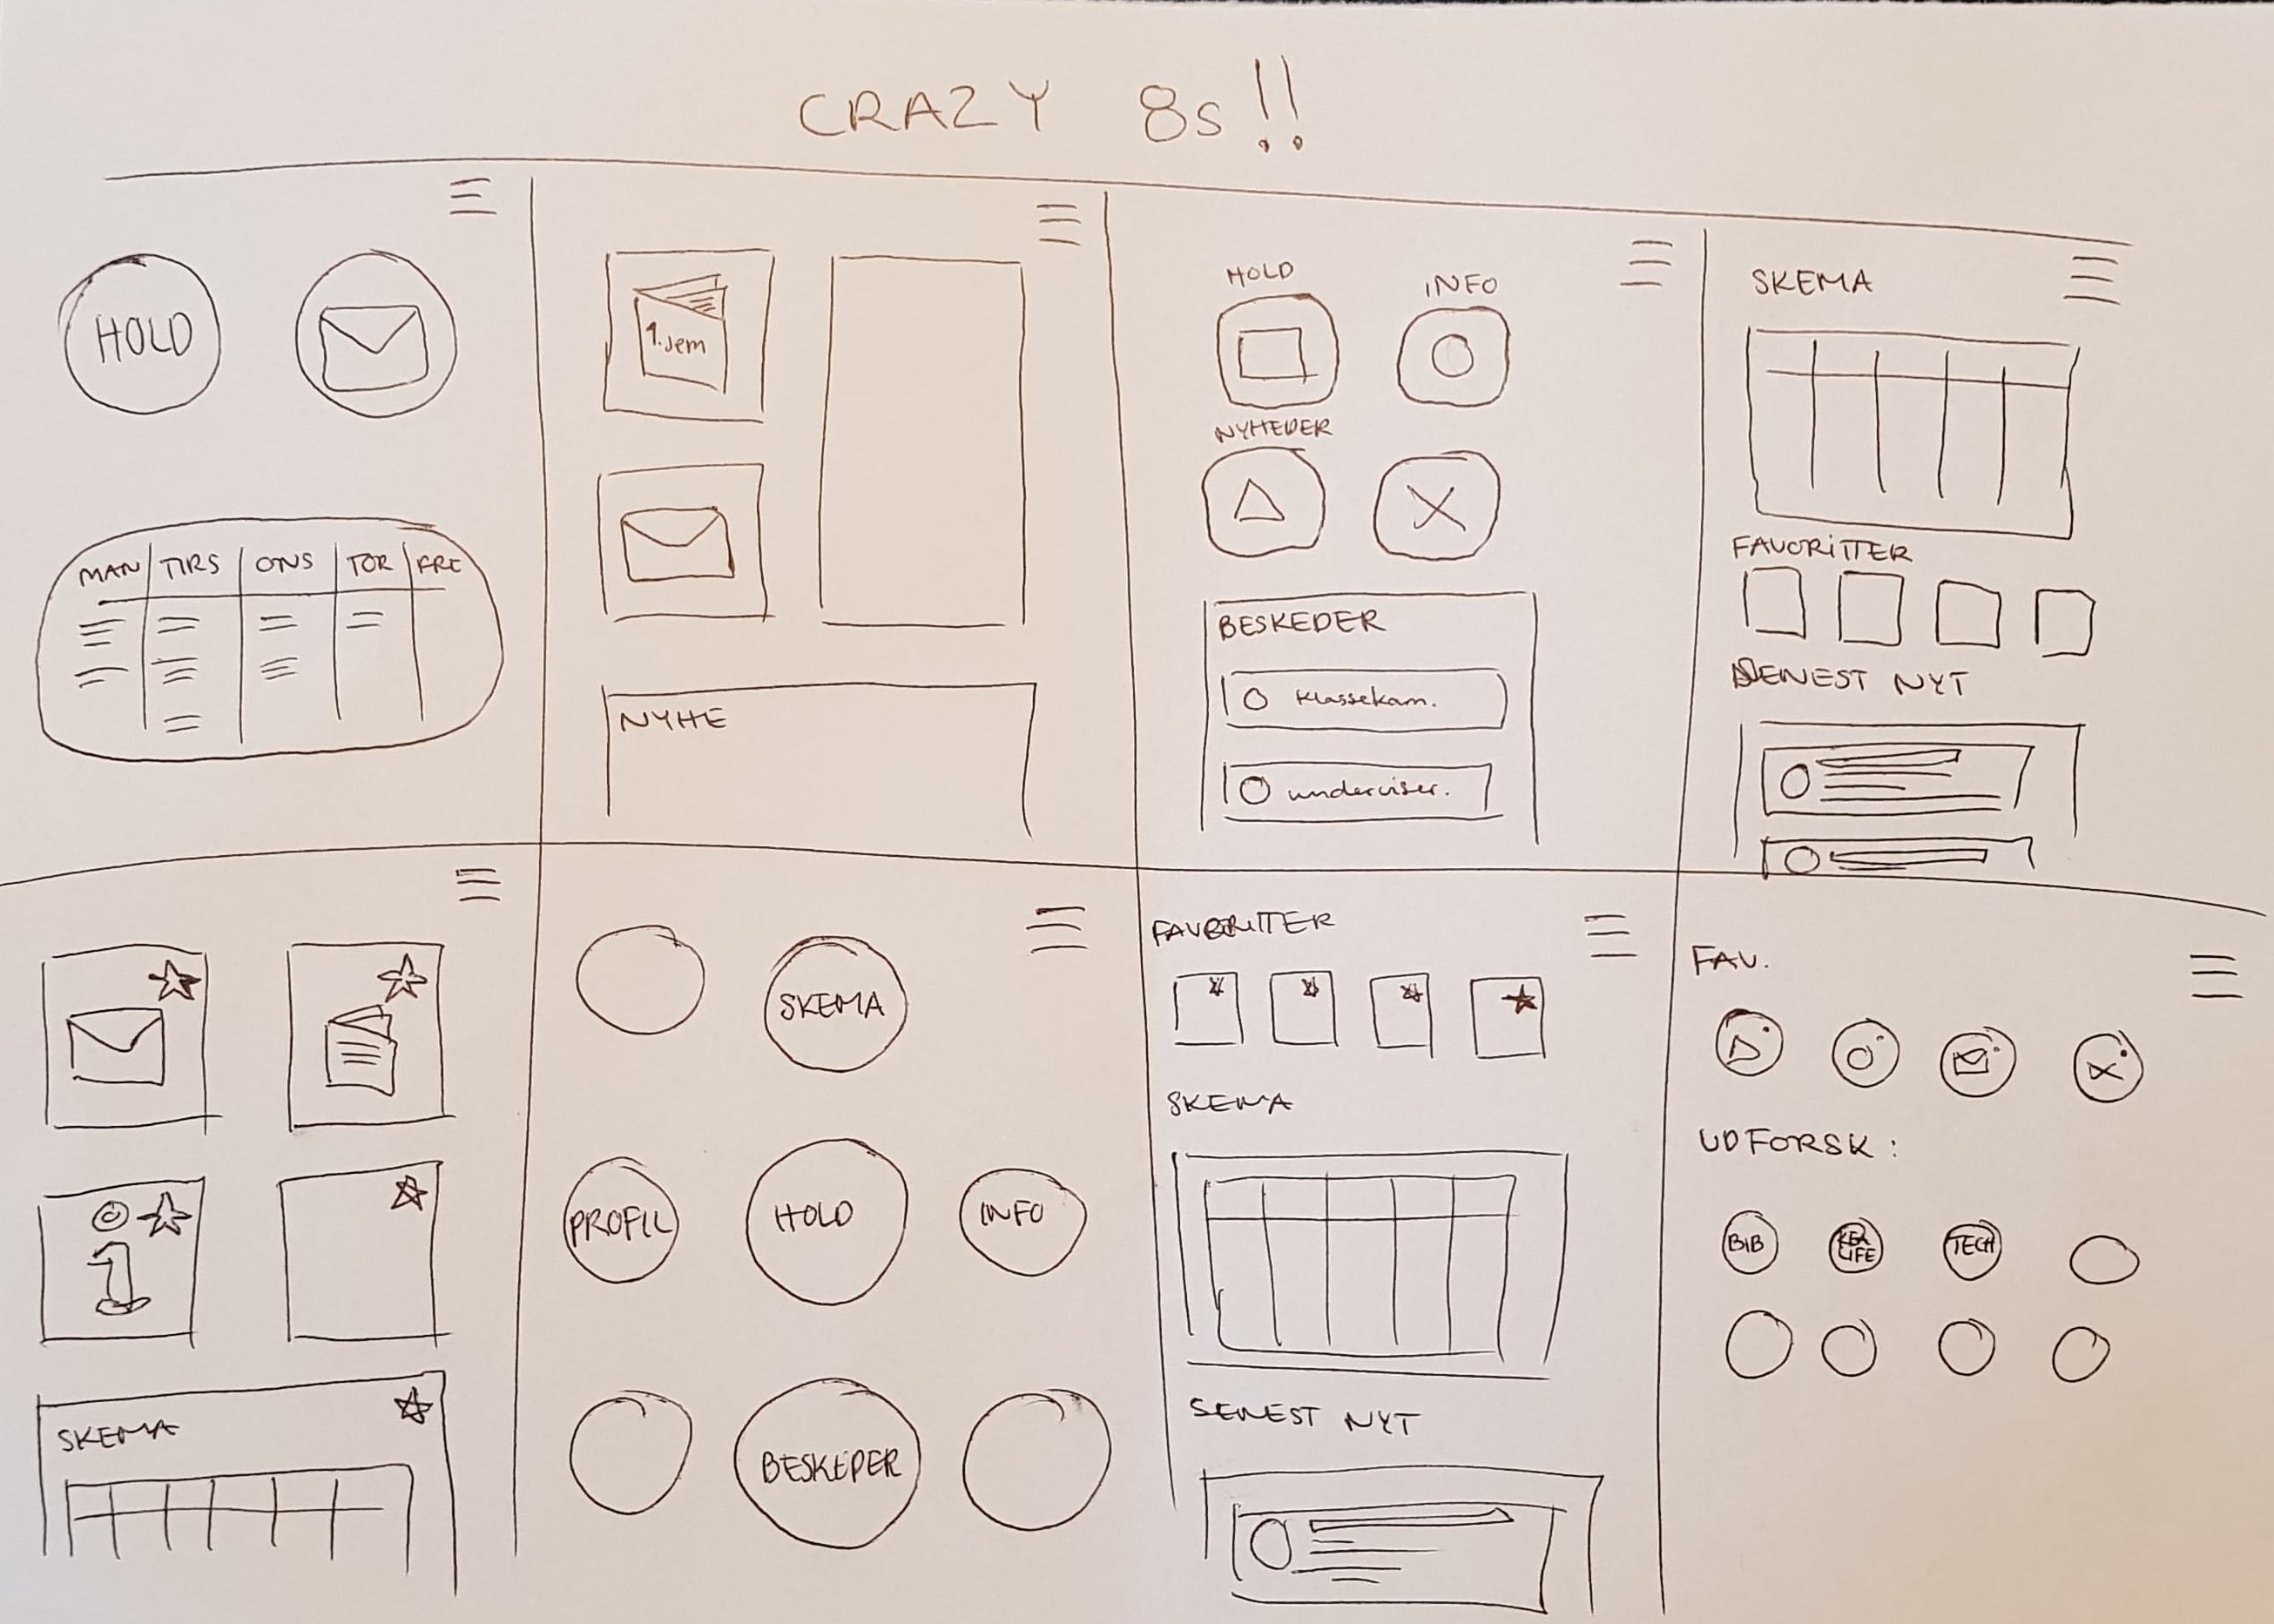 CRAZY 8s!!
HOLD
MAN TIRS ONS TOR FRE
1. sem
NYHE
HOLD INFO
NYHEDER
BESKEDER
klassekam.
underviser.
SKEMA
FAVORITTER
SENEST NYT
SKEMA
SKEMA
PROFIL HOLD INFO
BESKEDER
FAVORITTER
SKEMA
SENEST NYT
FAV.
UDFORSK:
BIB KEA LIFE TECH